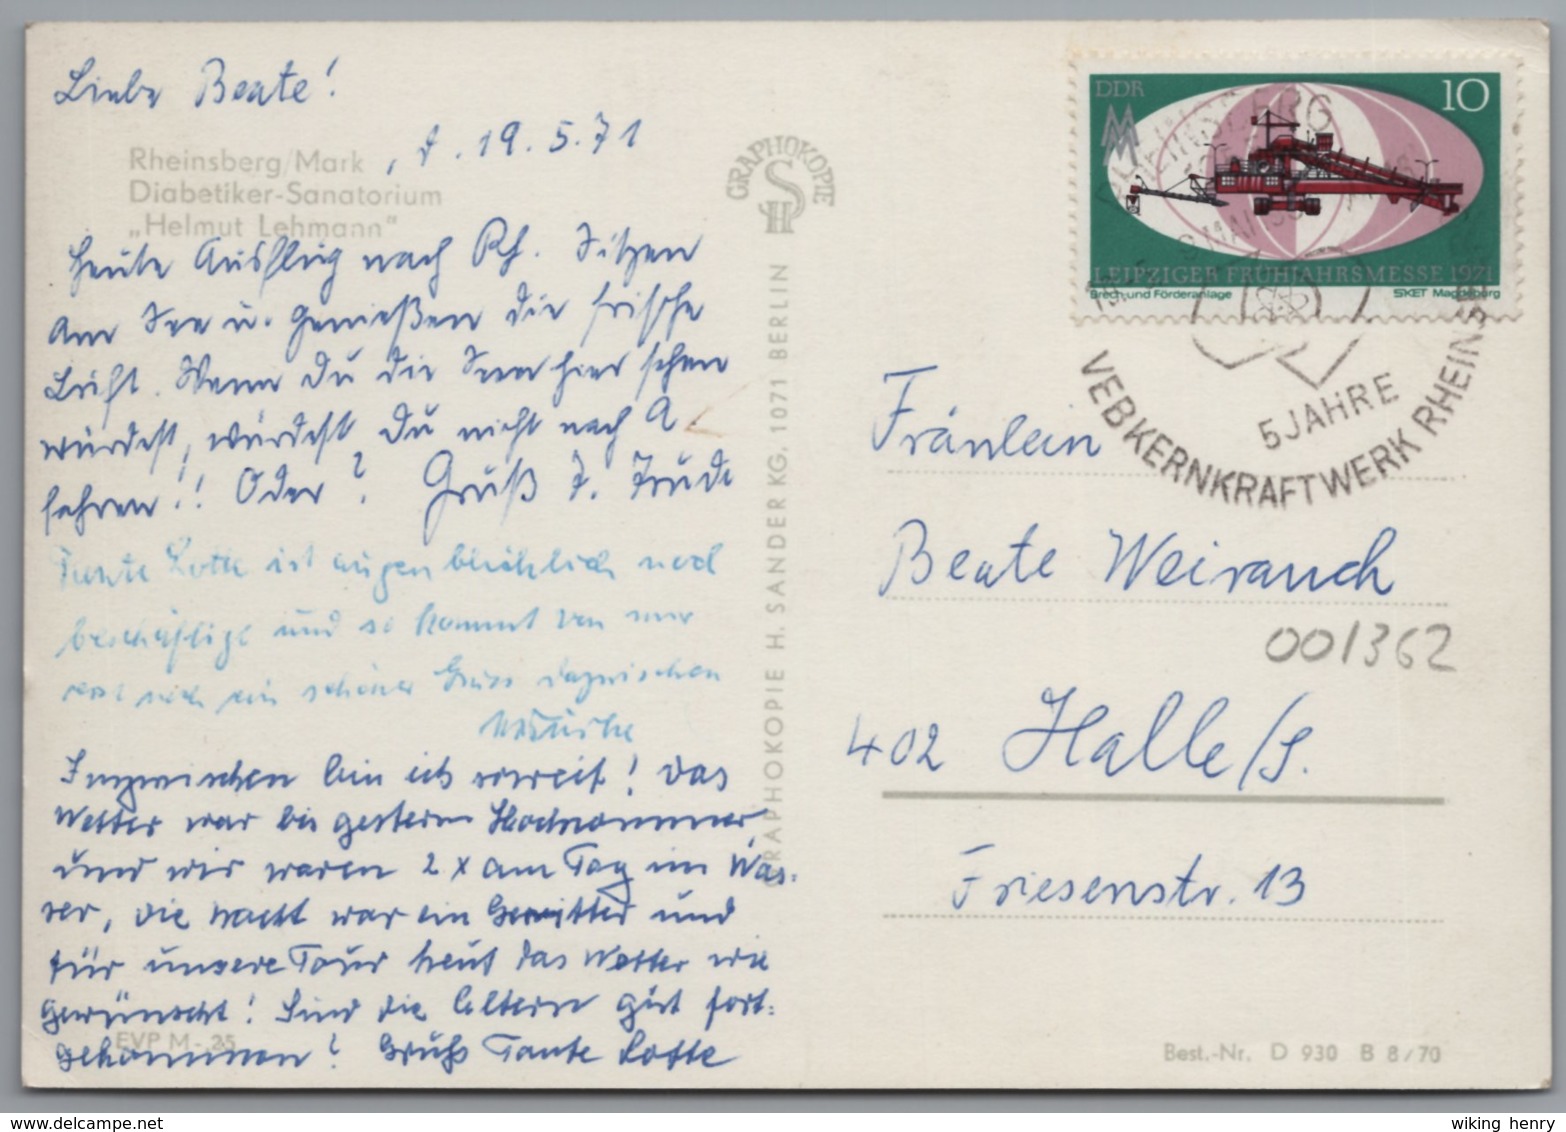 Liebe Beate!
, d. 19.5.71
Rheinsberg/Mark
Diabetiker-Sanatorium
„Helmut Lehmann"
Heute Ausflug nach Rh. Sitzen
am See u. genießen die frische
Luft. Wenn du die Seen hier sehen
würdest, würdest du nicht nach A
fahren!! Oder? Gruß T. Trude
Tante Lotte ist augenblicklich noch
beschäftigt und so kommt von mir
erst mal ein schöner Gruss dazwischen
Inzwischen bin ich soweit! Das
Wetter war bis gestern Hochsommer,
und wir waren 2 x am Tag im Was-
ser, die Nacht war ein Gewitter und
für unsere Tour heut das Wetter wie
gewünscht! Sind die Eltern gut fort-
gekommen? Gruß Tante Lotte
EVP M -.25
GRAPHOKOPIE
HS
GRAPHOKOPIE H. SANDER KG, 1071 BERLIN
DDR
MM
10
LEIPZIGER FRÜHJAHRSMESSE 1971
Brech- und Förderanlage
SKET Magdeburg
5 JAHRE
VEB KERNKRAFTWERK RHEINSBERG
Fräulein
Beate Weirauch
001362
402 Halle/S.
Friesenstr. 13
Best.-Nr. D 930 B 8/70
wiking henry